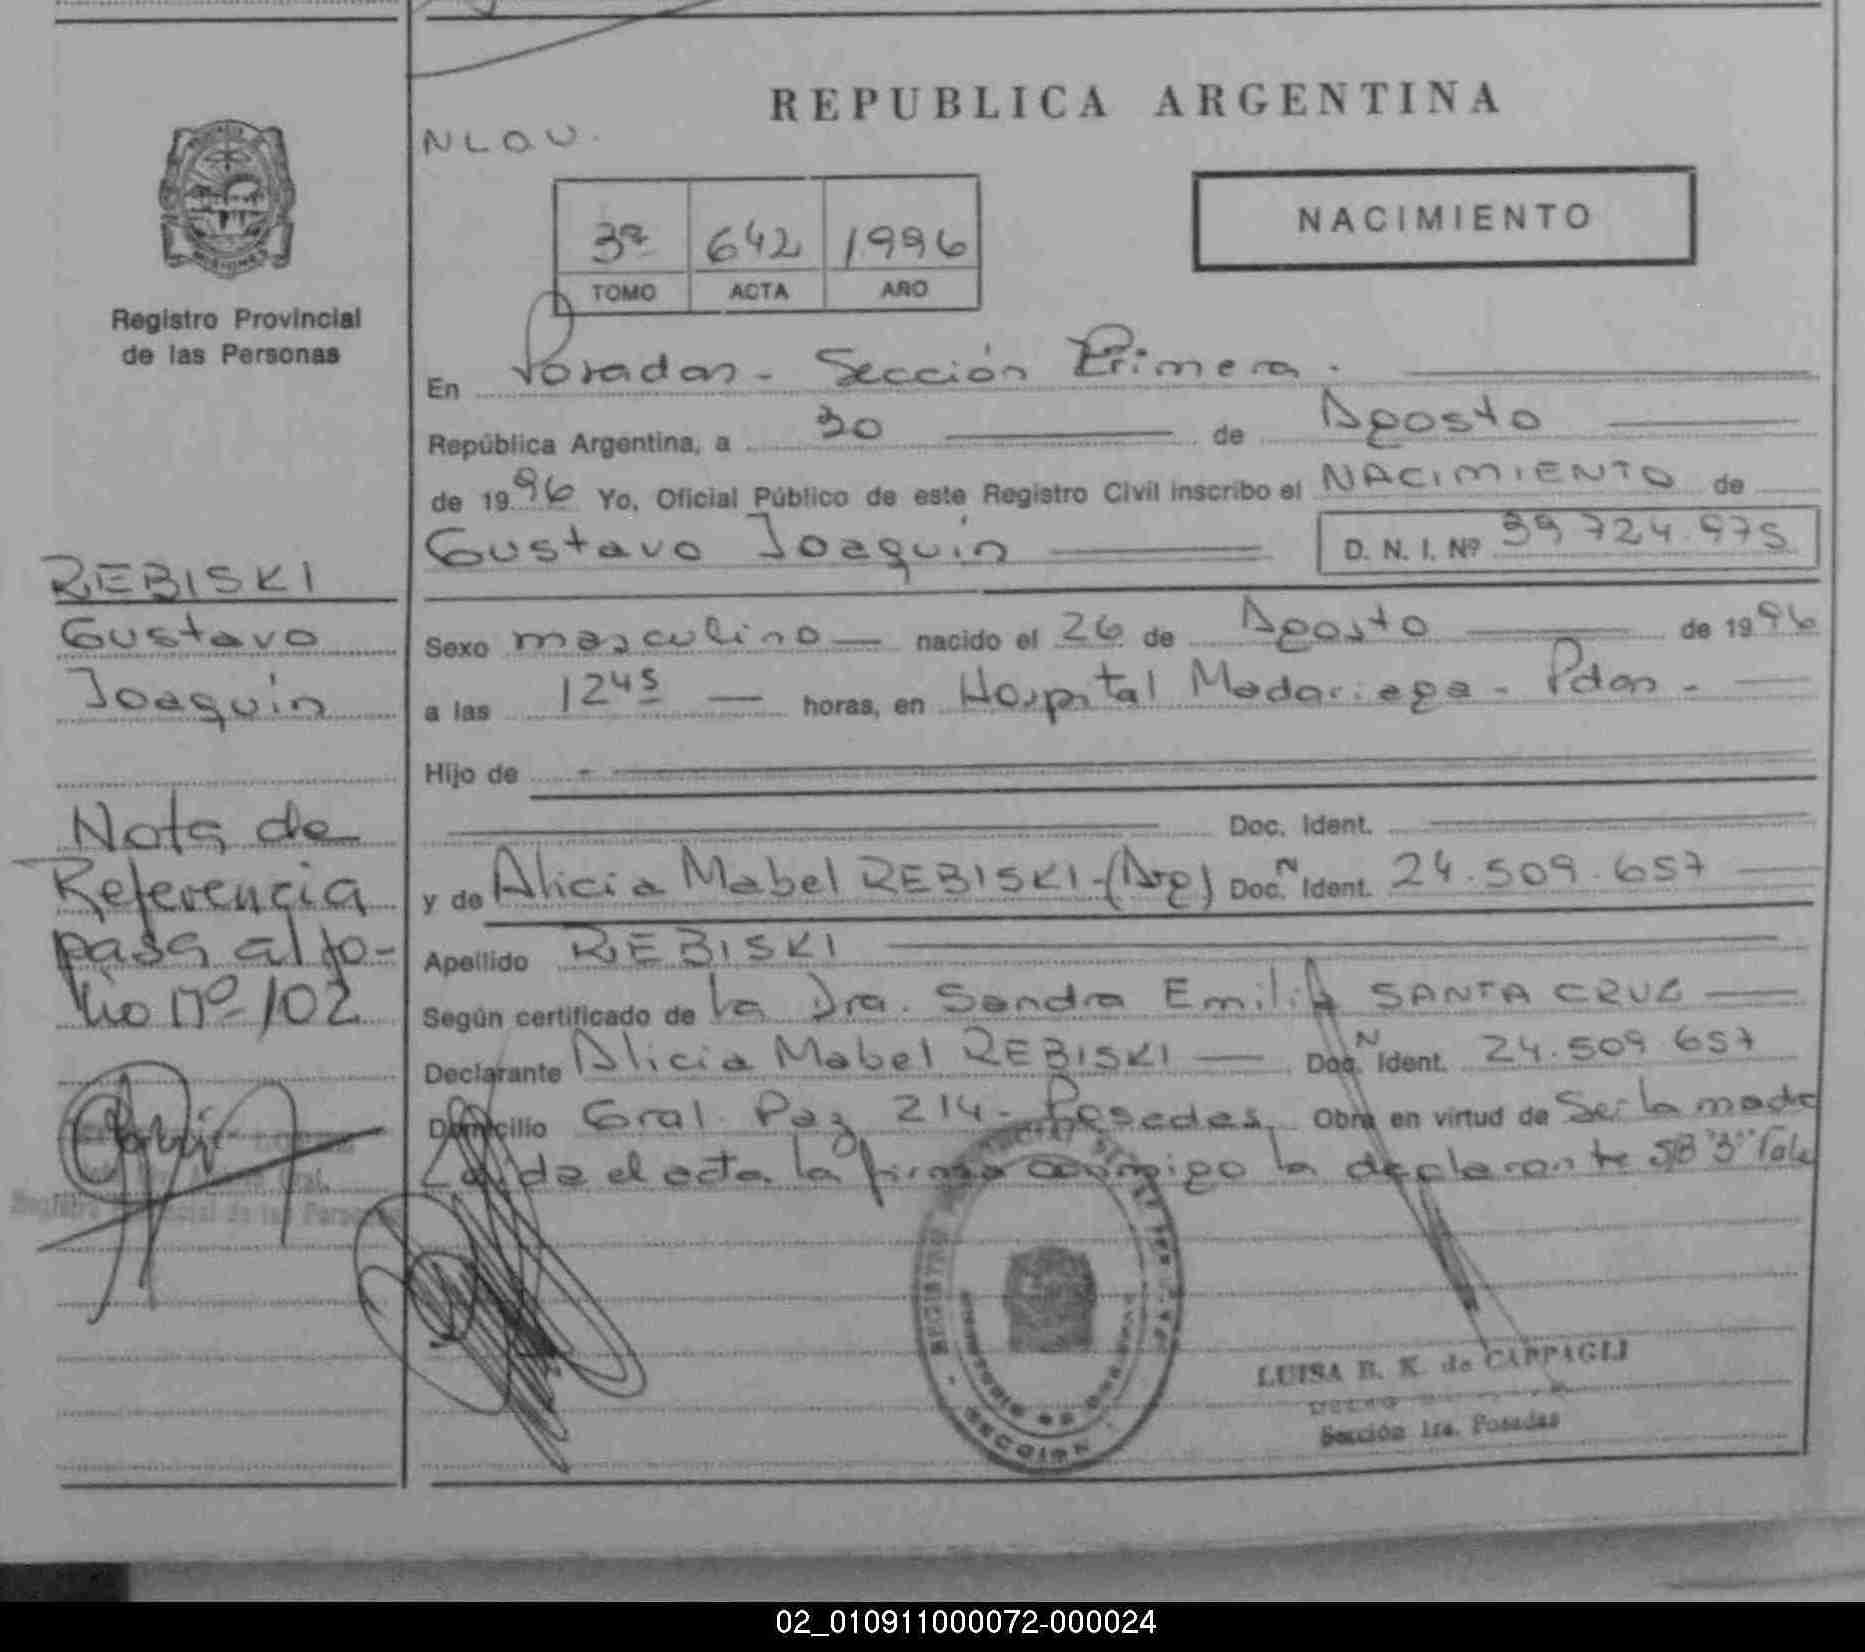 REPUBLICA ARGENTINA
NLOU.
NACIMIENTO
3º 642 1996
TOMO ACTA AÑO
MISIONES
Registro Provincial
de las Personas
En Posadas - Sección Primera.
República Argentina, a 30 de Agosto
de 1996 Yo, Oficial Público de este Registro Civil inscribo el NACIMIENTO de
Gustavo Joaquín D. N. I. Nº 39.724.975
Sexo masculino nacido el 26 de Agosto de 1996
a las 12 45 horas, en Hospital Madariaga - Pdas -
Hijo de
Doc. Ident.
y de Alicia Mabel REBISKI - (Arg) Doc. N Ident. 24.509.657
Apellido REBISKI
Según certificado de la Dra. Sandra Emilia SANTA CRUZ
Declarante Alicia Mabel REBISKI Doc. N Ident. 24.509.657
Domicilio Gral. Paz 214 - Posadas. Obra en virtud de Ser la madre
Leída el acta la firma conmigo la declarante
REBISKI
Gustavo
Joaquín
Nota de
Referencia
pasa al fo-
lio Nº 102
Registro Provincial de las Personas
LUISA B. K. de CAPPAGLI
Sección 1ra. Posadas
02_010911000072-000024